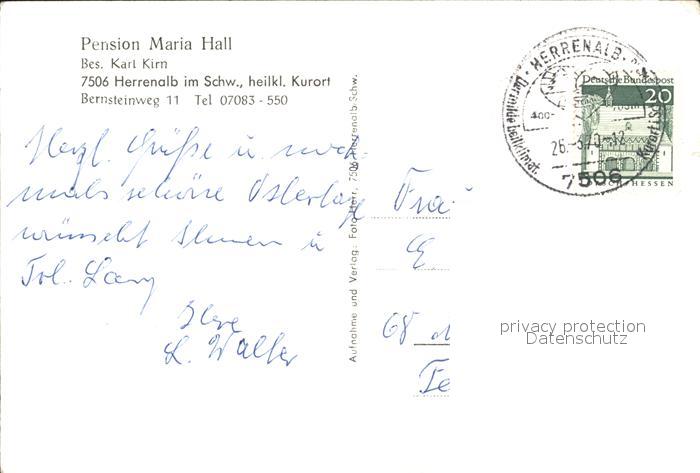 Pension Maria Hall
Bes. Karl Kirn
7506 Herrenalb im Schw., heilkl. Kurort
Bernsteinweg 11 Tel 07083 - 550
Herzl. Grüße u. noch
mals schöne Ostertage
wünscht Ihnen u
Frl. Lang
Ihre
L. Walter
Aufnahme und Verlag: Foto Herr, 7506 Herrenalb/Schw.
Frau
E
68
Fe
HERRENALB
26.-3.70.-12
7506
Deutsche Bundespost
20
HESSEN
privacy protection
Datenschutz